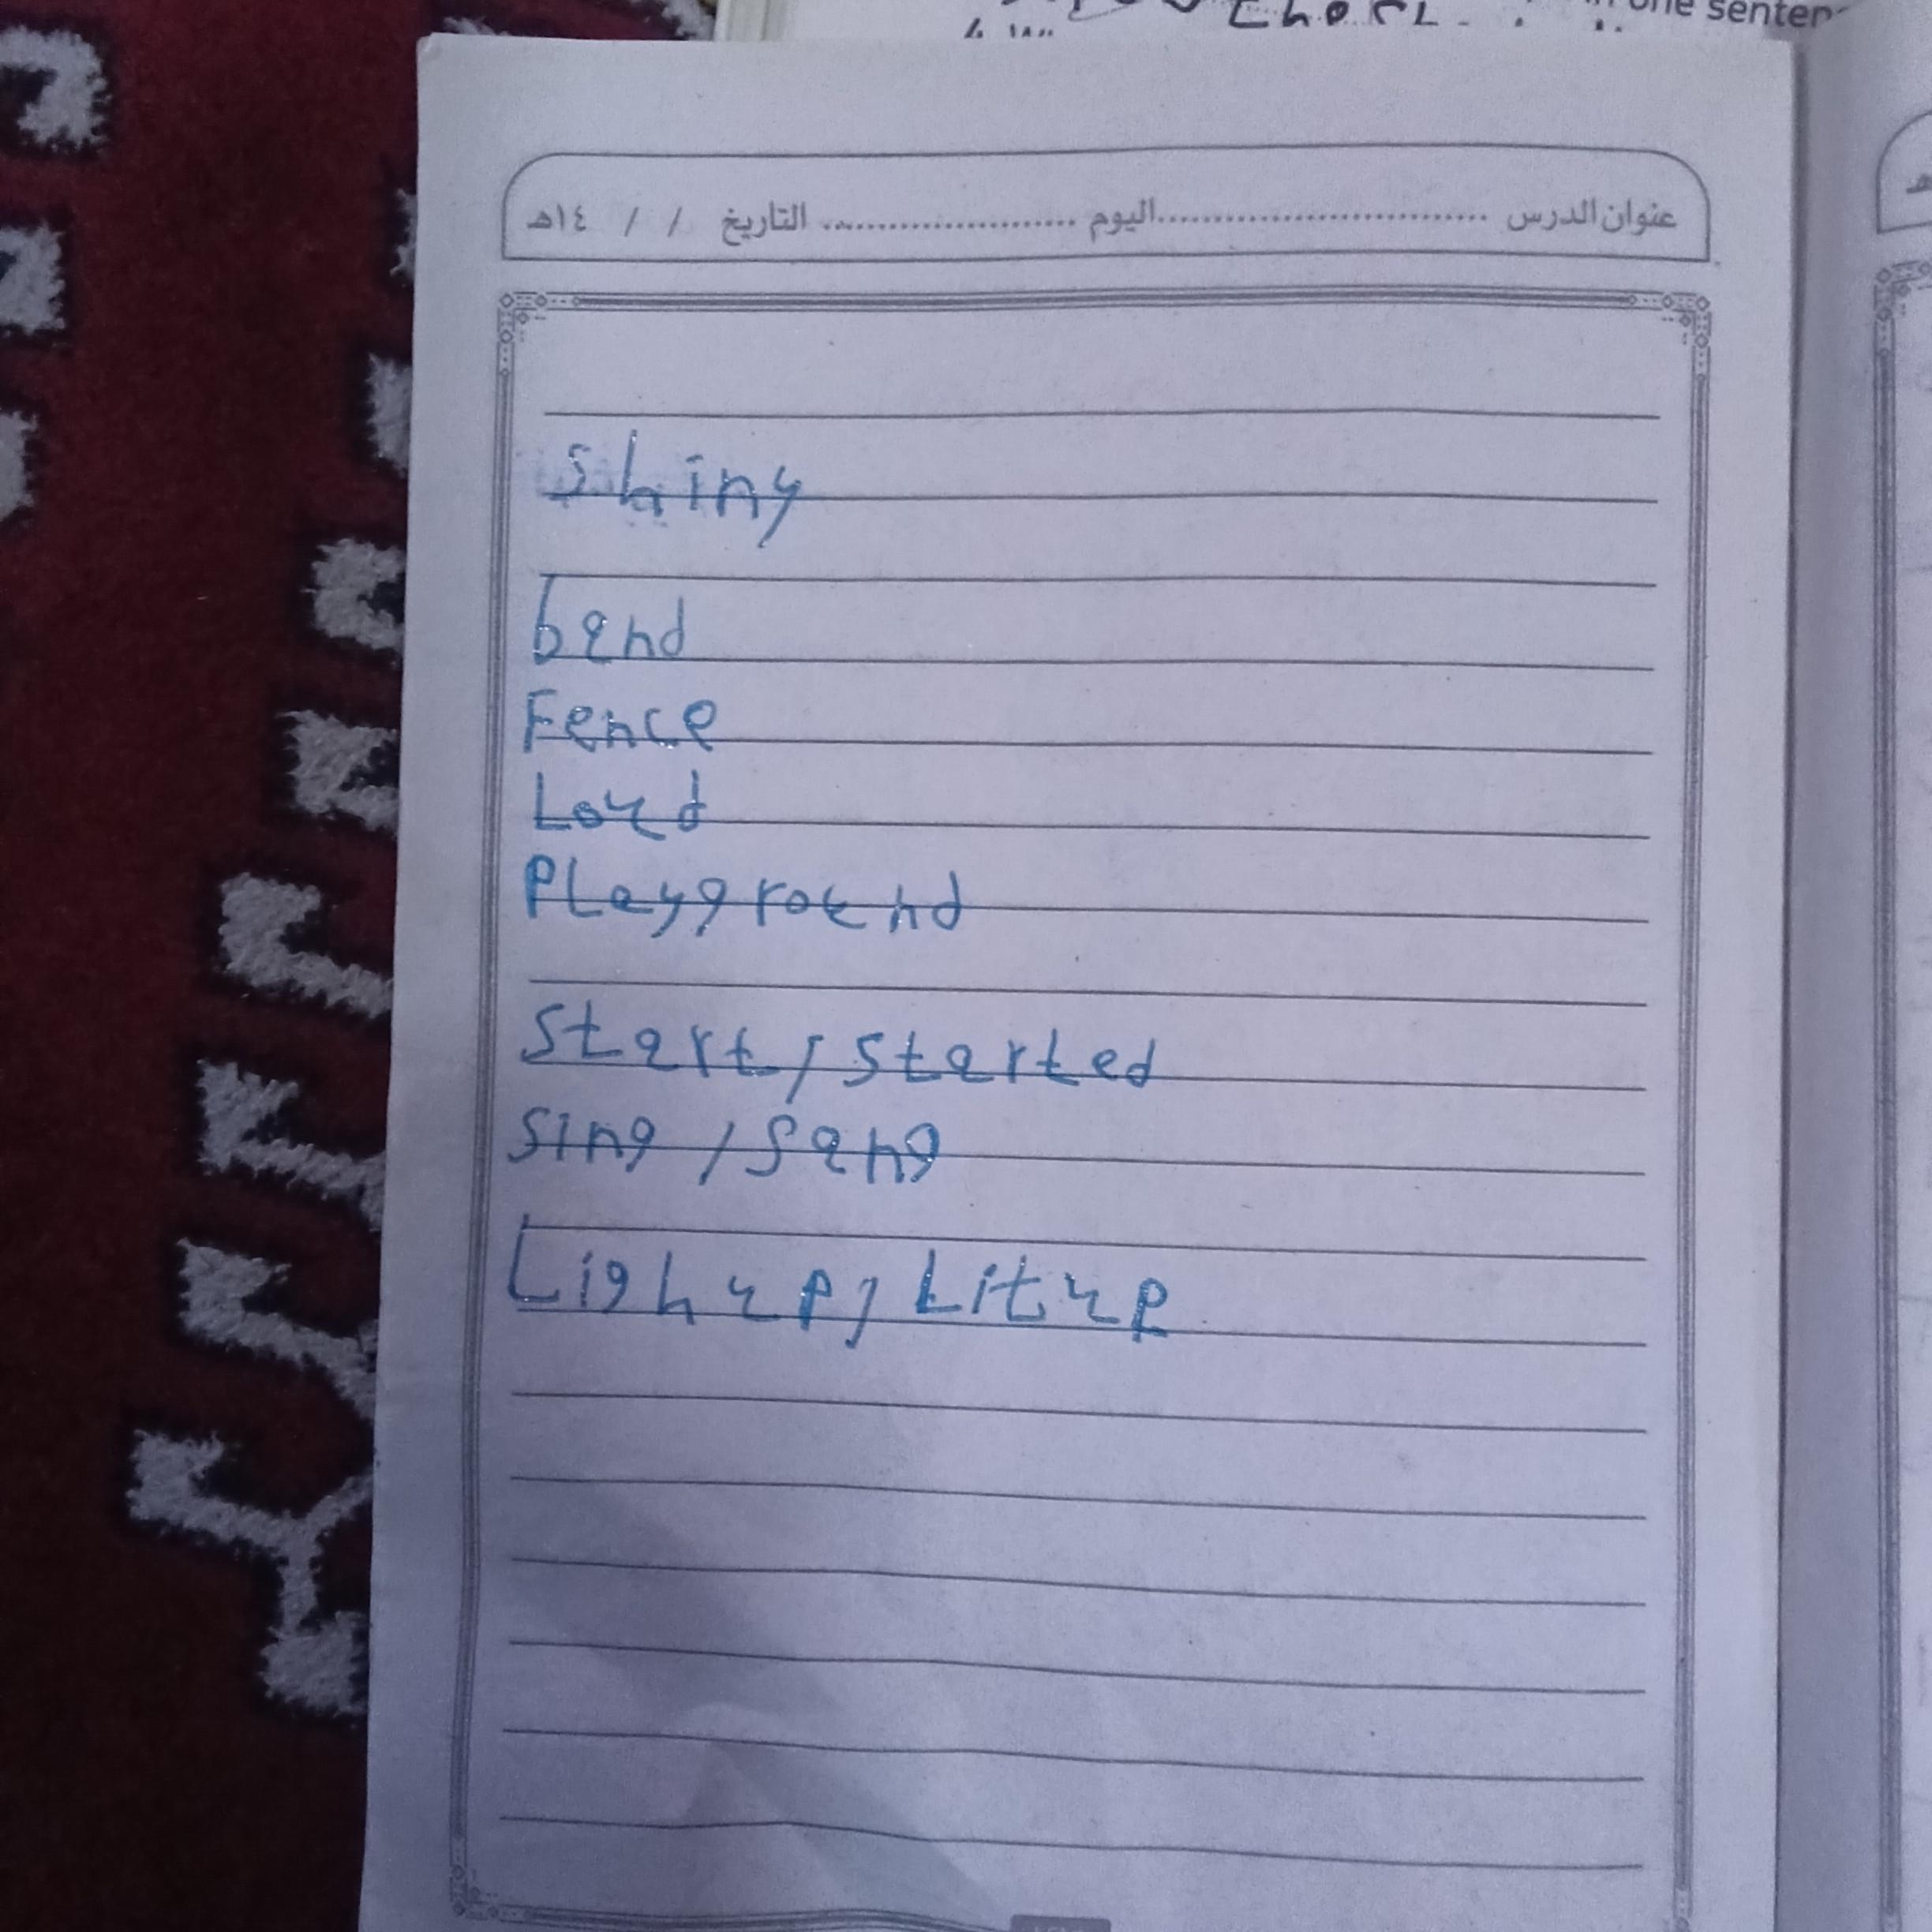 one senten
عنوان الدرس ................................ اليوم ........................ التاريخ / / ١٤هـ
shiny
band
Fence
Loud
PLayground
Start / Started
Sing / Sang
Ligh up / Lit up